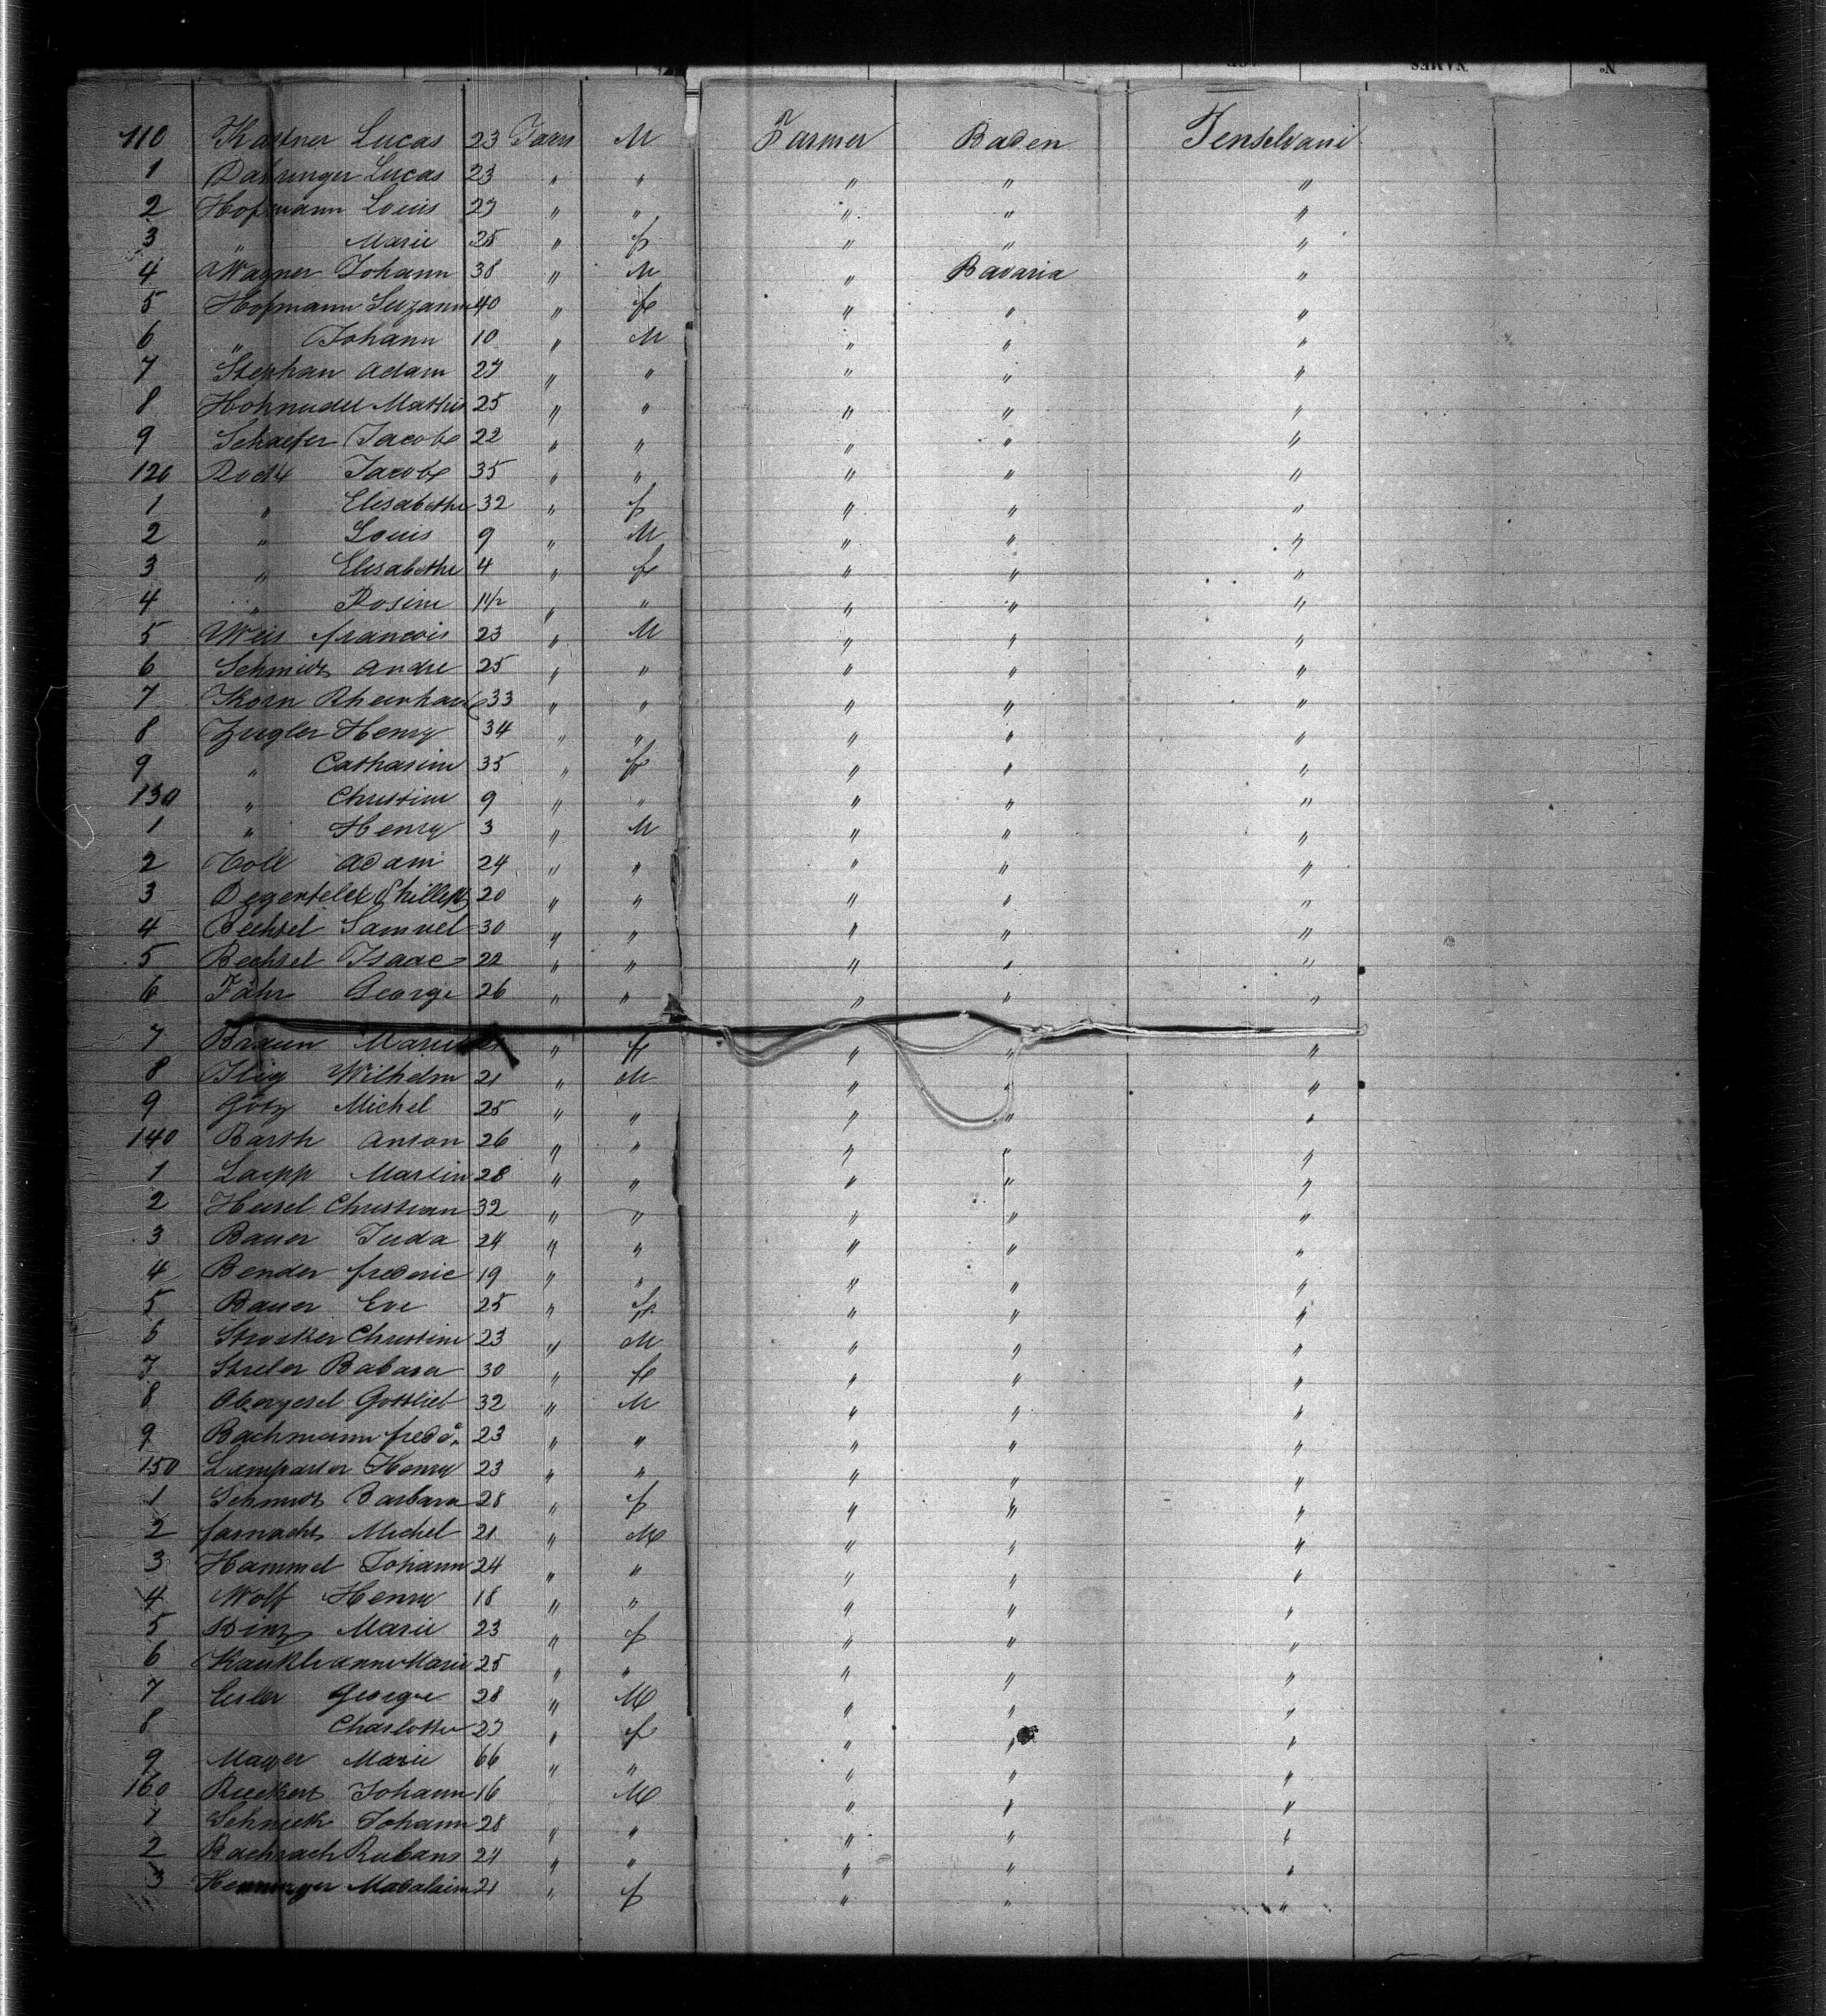 110 Kastner Lucas 23 Jaars M Farmer Baden Penselvani
1 Dahringer Lucas 23 " " " " "
2 Hofmann Louis 27 " " " " "
3 " Marie 25 " f " " "
4 Wagner Johann 38 " M " Bavaria "
5 Hofmann Suzann 40 " f " " "
6 " Johann 10 " M " " "
7 Stephan Adam 27 " " " " "
8 Mathis 25 " " " " "
9 Schaefer Jacob 22 " " " " "
120 Jacob 35 " " " " "
1 " Elisabethe 32 " f " " "
2 " Louis 9 " M " " "
3 " Elisabethe 4 " f " " "
4 " Rosine 1 1/2 " " " " "
5 Weis francois 23 " M " " "
6 Schmidt Andre 25 " " " " "
7 Korn 33 " " " " "
8 Zugler Henry 34 " " " " "
9 " Catharine 35 " f " " "
130 " Christine 9 " " " " "
1 " Henry 3 " M " " "
2 Toll Adam 24 " " " " "
3 Phillipp 20 " " " " "
4 Bechsel Samuel 30 " " " " "
5 Bechsel Isaac 22 " " " " "
6 Fähr George 26 " " " " "
7 Braun Marie " f " " "
8 Illig Wilhelm 21 " M " " "
9 Götz Michel 25 " " " " "
140 Barth Anton 26 " " " " "
1 Laepp Martin 28 " " " " "
2 Heisel Christian 32 " " " " "
3 Bauer Juda 24 " " " " "
4 Bender frederic 19 " " " " "
5 Bauer Eve 25 " f " " "
6 Christine 23 " M " " "
7 Streler Babara 30 " f " " "
8 Obergesel Gottlieb 32 " M " " "
9 Bachmann 23 " " " " "
150 Lamparter Henry 23 " " " " "
1 Schmidt Barbara 28 " f " " "
2 fasnacht Michel 21 " M " " "
3 Hammel Johann 24 " " " " "
4 Wolf Henry 18 " " " " "
5 Binz Marie 23 " f " " "
6 Marie 25 " " " " "
7 Eisler George 28 " M " " "
8 Charlotte 27 " f " " "
9 Mayer Marie 66 " " " " "
160 Rieckert Johann 16 M " " "
1 Johann 28 " " " " "
2 Bachrach 24 " " " " "
3 Henninger Madalaine 21 " f " " "